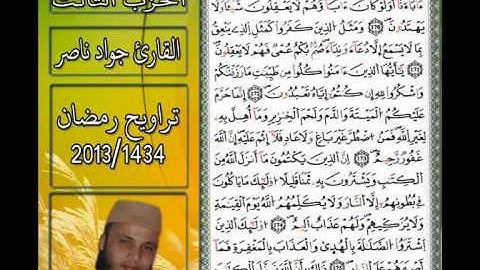 الحزب الثالث
القارئ جواد ناصر
تراويح رمضان
2013/1434
ءَابَآءَنَآ أَوَلَوْ كَانَ ءَابَآؤُهُمْ لَا يَعْقِلُونَ شَيْـًٔا وَلَا
يَهْتَدُونَ وَمَثَلُ اُ۬لذِينَ كَفَرُواْ كَمَثَلِ اِ۬لذِے يَنْعِقُ
بِمَا لَا يَسْمَعُ إِلَّا دُعَآءً وَنِدَآءً صُمُّۢ بُكْمٌ عُمْيٌ فَهُمْ لَا يَعْقِلُونَ
يَٰٓأَيُّهَا اَ۬لذِينَ ءَامَنُواْ كُلُواْ مِن طَيِّبَٰتِ مَا رَزَقْنَٰكُمْ
وَاشْكُرُواْ لِلهِ إِن كُنتُمُۥٓ إِيَّاهُ تَعْبُدُونَ إِنَّمَا حَرَّمَ
عَلَيْكُمُ اُ۬لْمَيْتَةَ وَالدَّمَ وَلَحْمَ اَ۬لْخِنزِيرِ وَمَآ أُهِلَّ بِهِۦ
لِغَيْرِ اِ۬للَّهِ فَمَنُ اُ۟ضْطُرَّ غَيْرَ بَاغٍ وَلَا عَادٍ فَلَآ إِثْمَ عَلَيْهِ إِنَّ اَ۬للَّهَ
غَفُورٌ رَّحِيمٌ إِنَّ اَ۬لذِينَ يَكْتُمُونَ مَآ أَنزَلَ اَ۬للَّهُ مِنَ
اَ۬لْكِتَٰبِ وَيَشْتَرُونَ بِهِۦ ثَمَناً قَلِيلًا اُوْلَٰٓئِكَ مَا يَاكُلُونَ
فِے بُطُونِهِمُۥٓ إِلَّا اَ۬لنَّارَ وَلَا يُكَلِّمُهُمُ اُ۬للَّهُ يَوْمَ اَ۬لْقِيَٰمَةِ
وَلَا يُزَكِّيهِمْ وَلَهُمْ عَذَابٌ اَلِيمٌ اُوْلَٰٓئِكَ اَ۬لذِينَ
اَ۪شْتَرَوُاْ اُ۬لضَّلَٰلَةَ بِالْهُدَىٰ وَالْعَذَابَ بِالْمَغْفِرَةِ فَمَآ
أَصْبَرَهُمْ عَلَى اَ۬لنَّارِ ذَٰلِكَ بِأَنَّ اَ۬للَّهَ نَزَّلَ اَ۬لْكِتَٰبَ